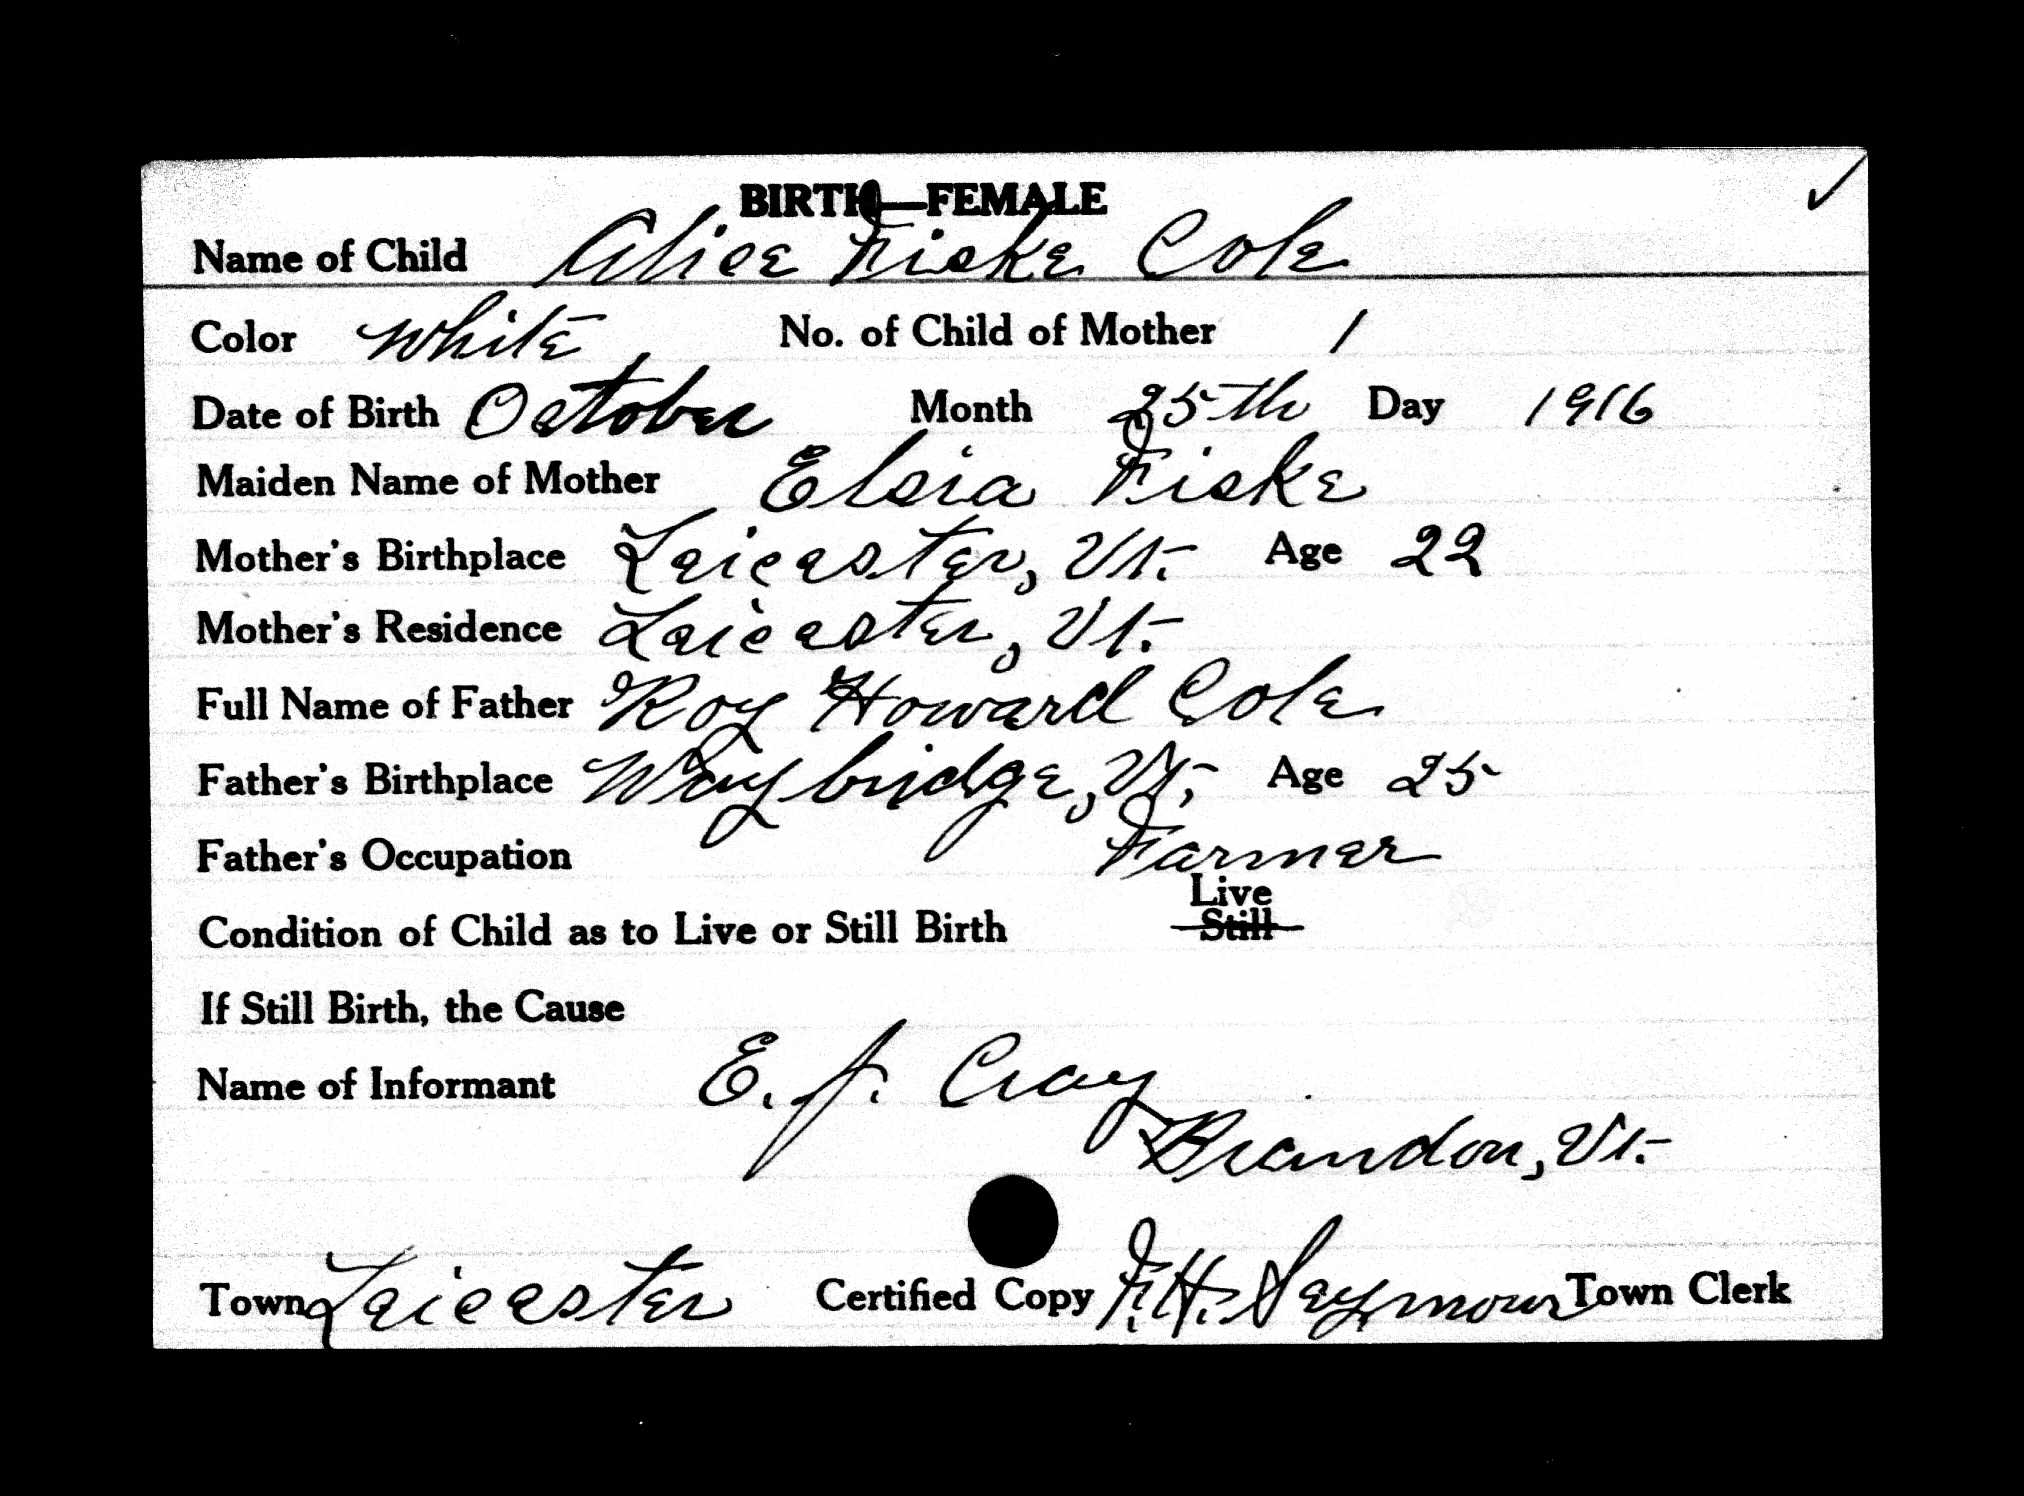 BIRTH—FEMALE
Name of Child Alice Fiske Cole
Color White No. of Child of Mother 1
Date of Birth October Month 25th Day 1916
Maiden Name of Mother Elsia Fiske
Mother's Birthplace Leicester, Vt. Age 22
Mother's Residence Leicester, Vt.
Full Name of Father Roy Howard Cole
Father's Birthplace Waybridge, Vt. Age 25
Father's Occupation Farmer
Live
Condition of Child as to Live or Still Birth Still
If Still Birth, the Cause
Name of Informant E. J. Cray
Brandon, Vt.
Town Leicester Certified Copy F. H. Seymour Town Clerk